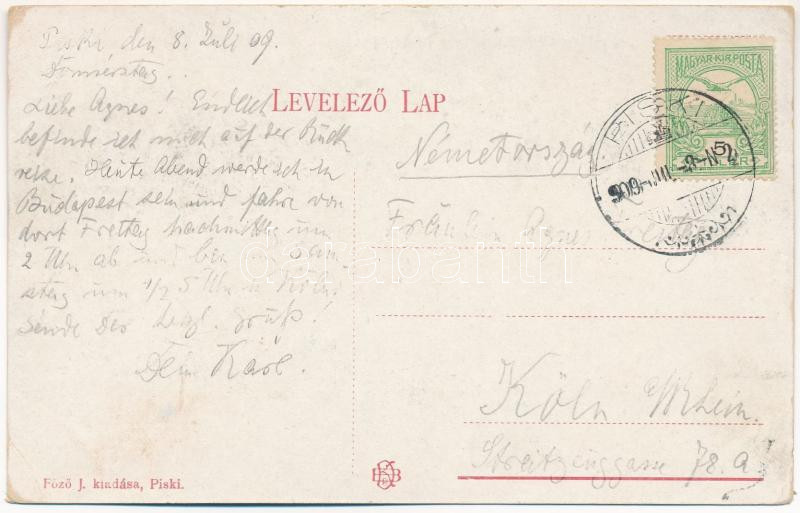 Piski den 8. Juli 09.
Donnerstag..
Liebe Agnes! Endlich
befinde ich mich auf der Rück
reise. Heute Abend werde ich in
Budapest sein und fahre von
dort Freitag nachmittag um
2 Uhr ab und bin am Sam
stag um 1/2 5 Uhr in Köln.
Sende Dir herzl. Gruß!
Dein Karl.
LEVELEZŐ LAP
MAGYAR KIR. POSTA
PISKI
909 JUL. -8 N 2
Németország
Fräulein Agnes
Köln a/Rhein.
Streitzeuggasse 78 a
Főző J. kiadása, Piski.
darabanth